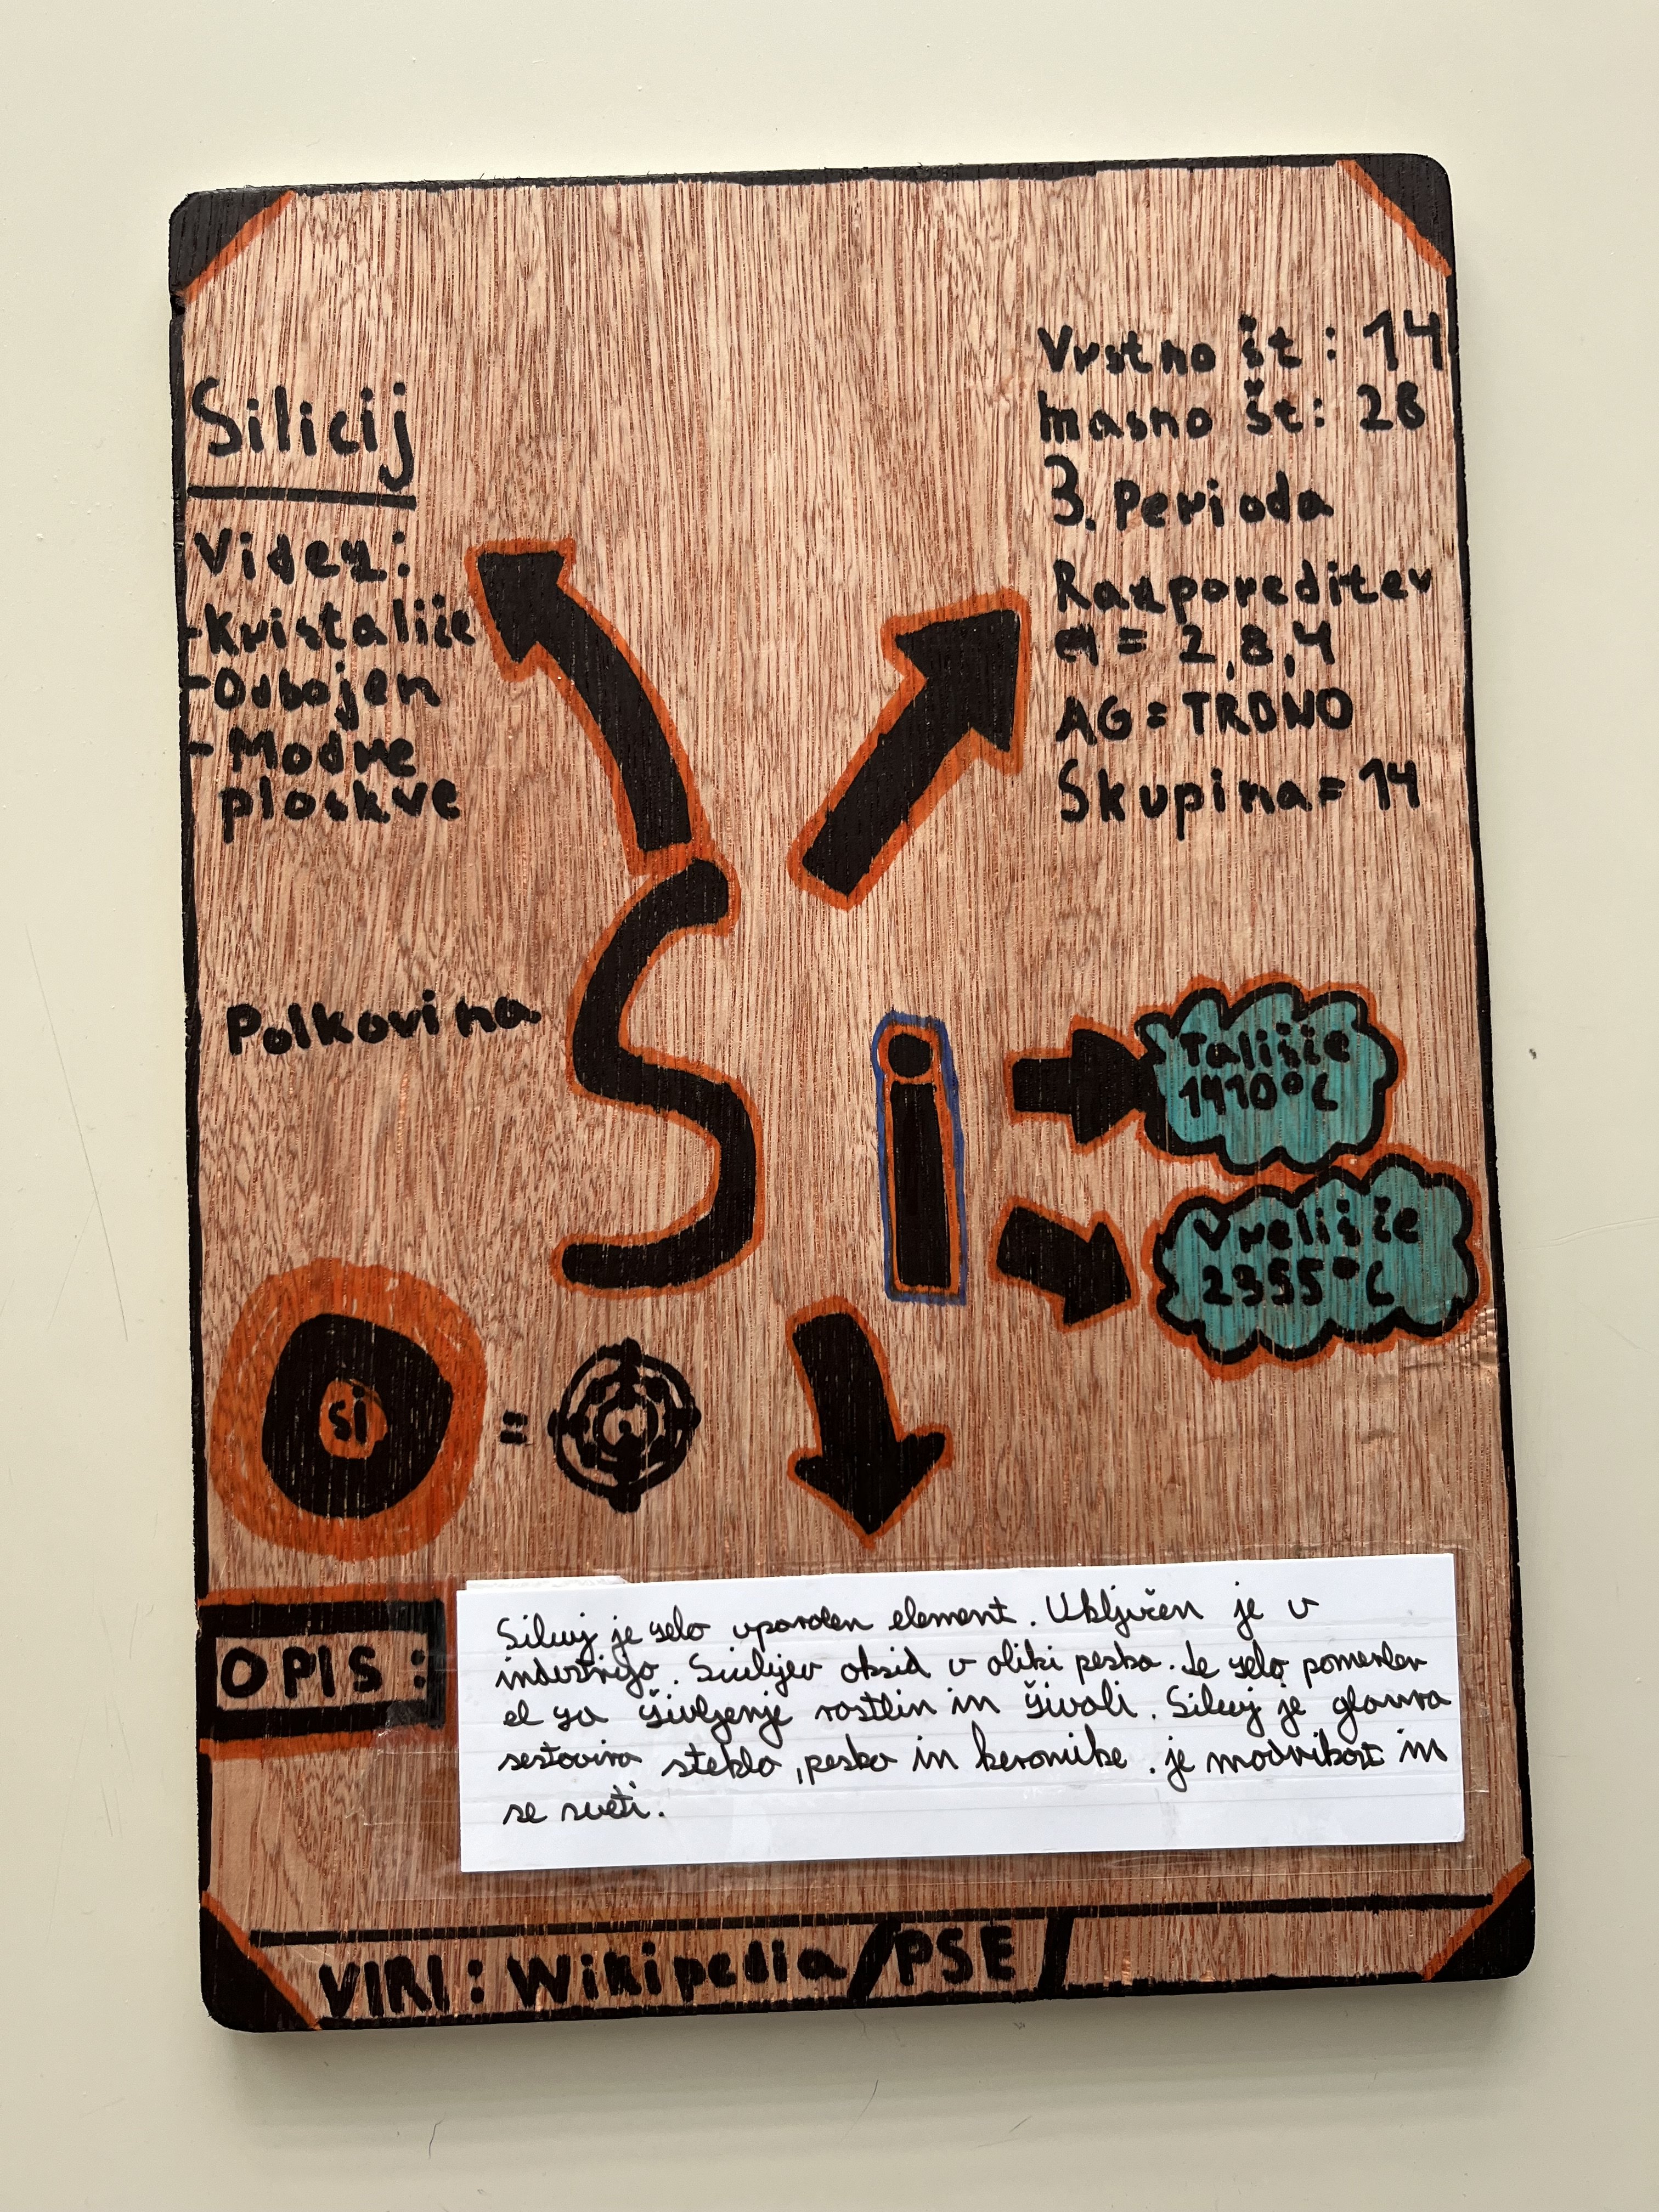 Silicij
Videz:
-Kristalije
-Odbojen
-Modre
ploskve
Vrstno št: 14
masno št: 28
3. Perioda
Razporeditev
el = 2,8,4
AG = TRDNO
Skupina = 14
Polkovina
Si
Tališče
1410°C
Vrelišče
2355°C
si
=
OPIS:
Silicij je zelo uporaben element. Vključen je v
industrijo. Silicijev oksid v obliki peska. Je zelo pomemben
el za življenje rastlin in živali. Silicij je glavna
sestavina stekla, peska in keramike. je modrikast in
se sveti.
VIRI: Wikipedia/PSE/